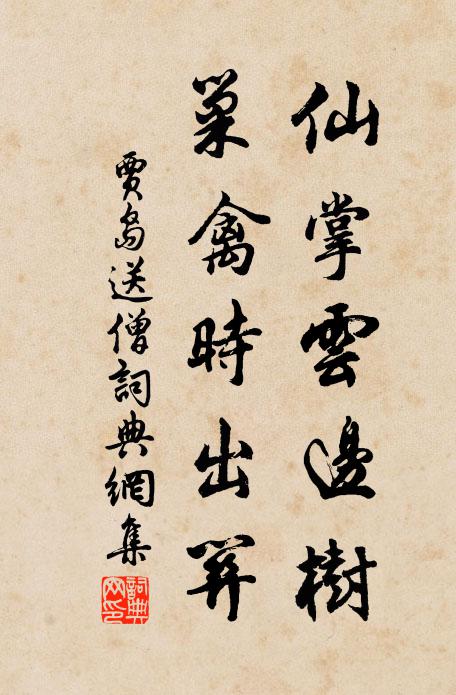 仙掌雲邊樹
巢禽時出關
賈島送僧詞典網集
詞典
网印